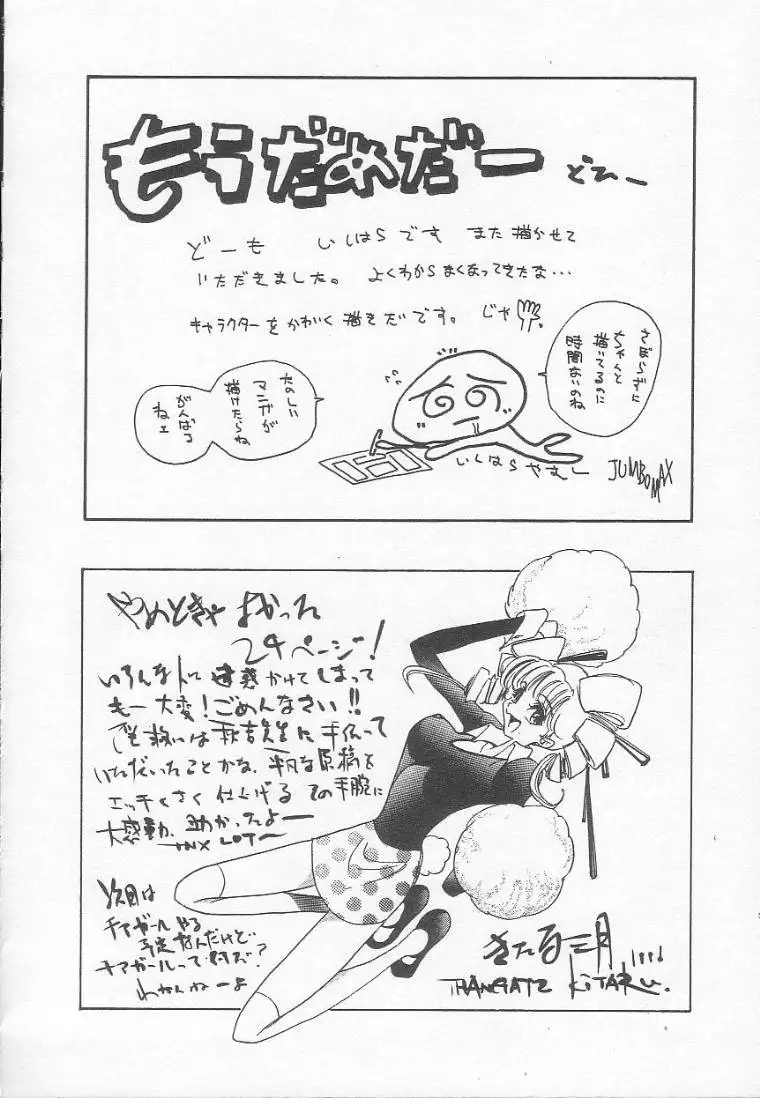 もうだめだー どひー
どーも いしはらです また描かせて
いただきました。 よくわからなくなってきたな…
キャラクターをかわいく描きたいです。 じゃ
さぼらずに
ちゃんと
描いてるのに
時間ないのね
たのしい
マンガが
描けたらね
がんばる
ねェ
いしはらやすし
JUMBOMAX
やめときゃ よかった
24ページ!
いろんな人に 迷惑かけてしまって
もー大変! ごめんなさい!!
でも救いは 秋吉先生に 手伝って
いただいたことかな、平凡な原稿を
エッチくさく 仕上げる その手腕に
大感動、助かったよー
TNX LOT~
次回は
チアガール やる
予定なんだけど…
チアガールって 何だ?
わかんねーよ
きたる三月
KITARU.